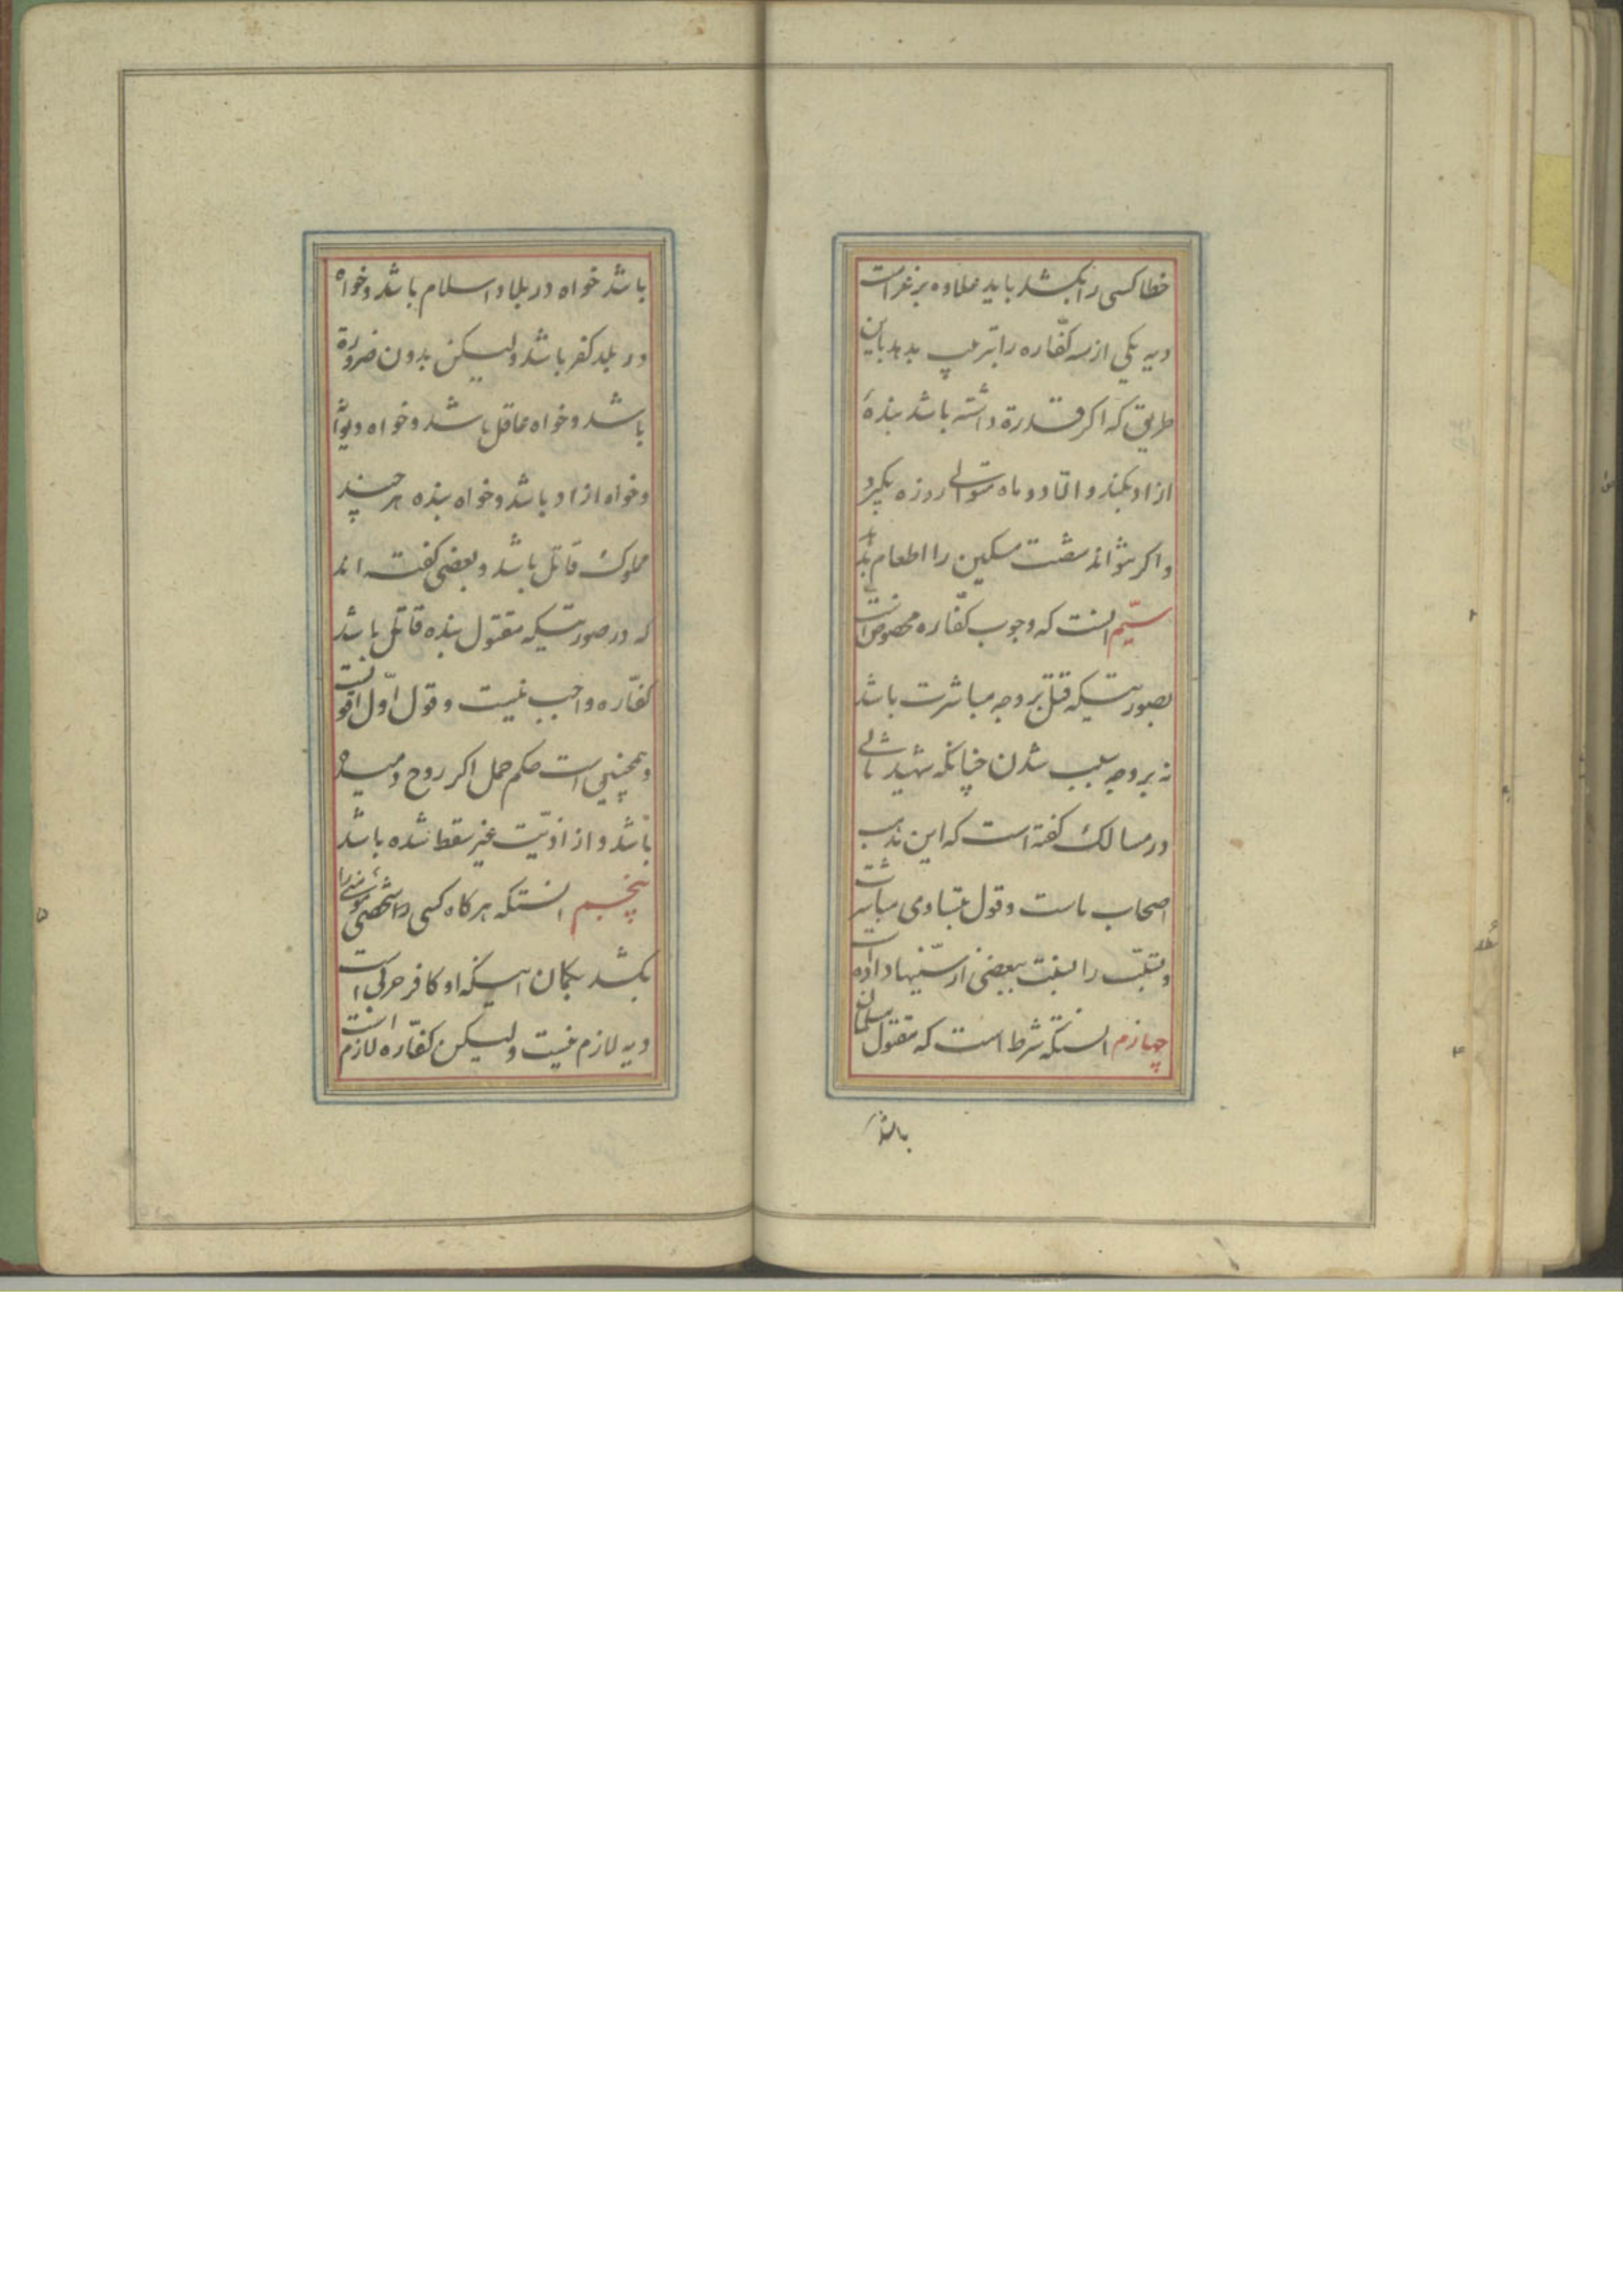 خطا کسی را بکشد باید علاوه بر غرامت
دیه یکی از سه کفّاره را بترتیب بدهد باین
طریق که اکر قدرة داشته باشد بندهٔ
ازاد بکند و الّا دو ماه متوالی روزه بکیرد
و اکر نتواند شصت مسکین را اطعام بدهد
سیّم انست که وجوب کفّاره مخصوص است
بصورتیکه قتل بر وجه مباشرت باشد
نه بر وجه سبب شدن چنانکه شهید ثانی
در مسالک کفته است که این مذهب
اصحاب ماست و قول بتساوی مباشرت
و تسبّب را نسبت ببعضی از سنّیها داده است
چهارم انستکه شرط است که مقتول مسلمان
باشد
باشد خواه در بلاد اسلام باشد و خواه
در بلد کفر باشد ولیکن بدون ضرورة
باشد و خواه عاقل باشد و خواه دیوانه
و خواه ازاد باشد و خواه بنده هر چند
مملوک قاتل باشد و بعضی کفته اند
که در صورتیکه مقتول بنده قاتل باشد
کفّاره واجب نیست و قول اوّل اقوی است
و همچنین است حکم حمل اکر روح دمیده
باشد و از اذیّت غیر سقط شده باشد
پنجم انستکه هرکاه کسی شخص مؤمنی را
بکشد بکمان اینکه او کافر حربی است
دیه لازم نیست ولیکن کفّاره لازم است